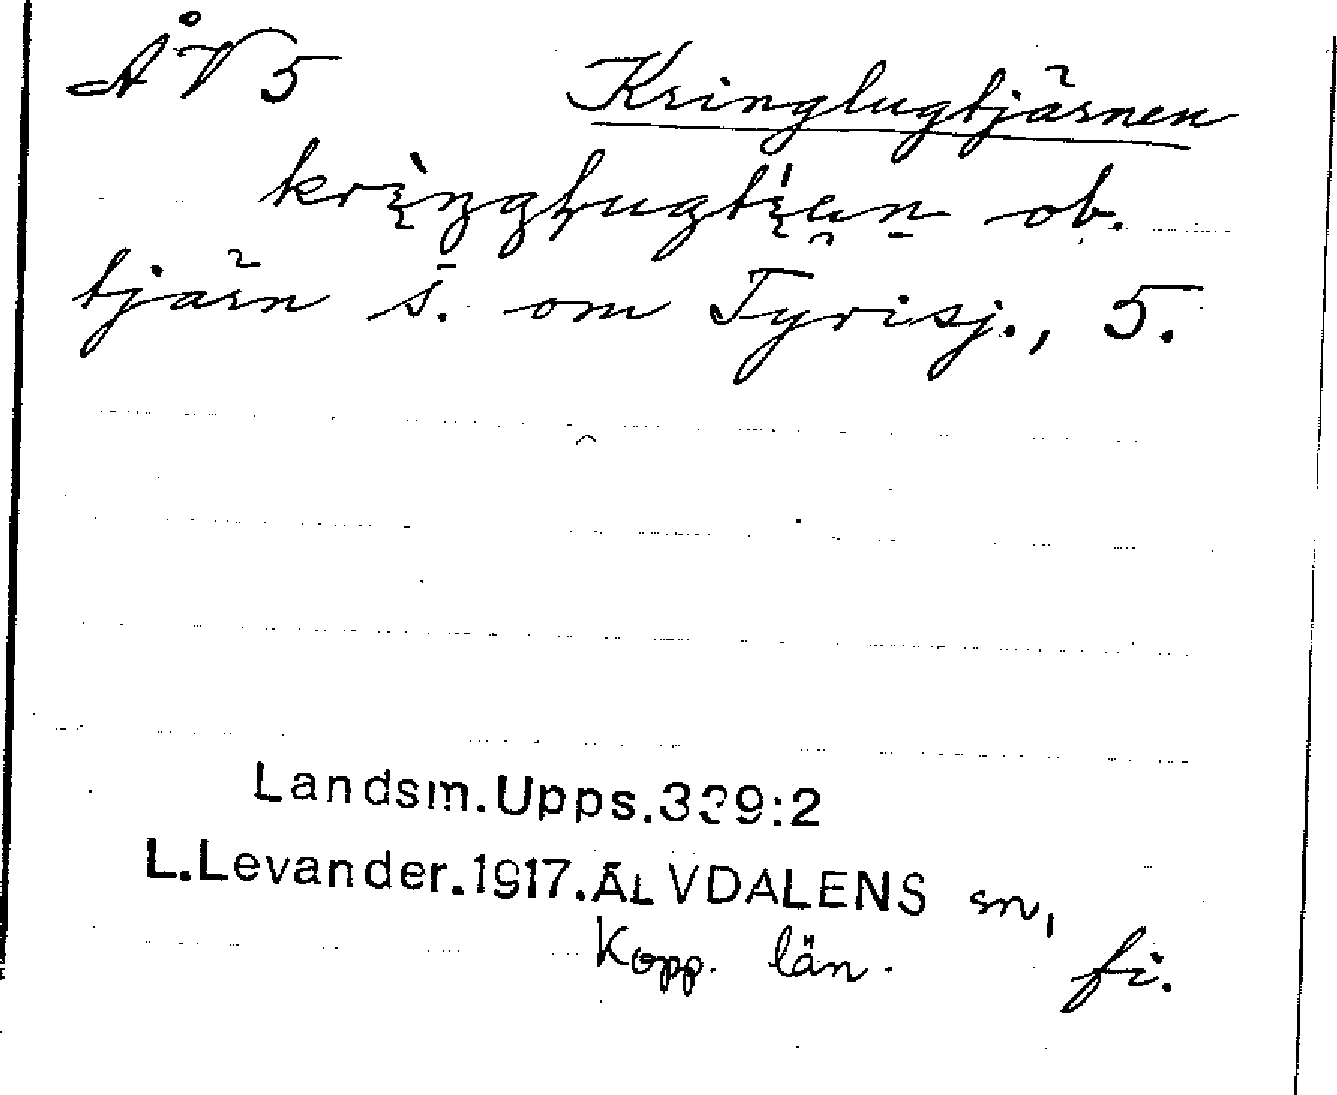 ÅV 5 Kringlugtjärnen
ob.
tjärn s. om Tyrisj., 5.
Landsm.Upps.339:2
L.Levander.1917.ÄLVDALENS sn,
Kopp. län. fi.